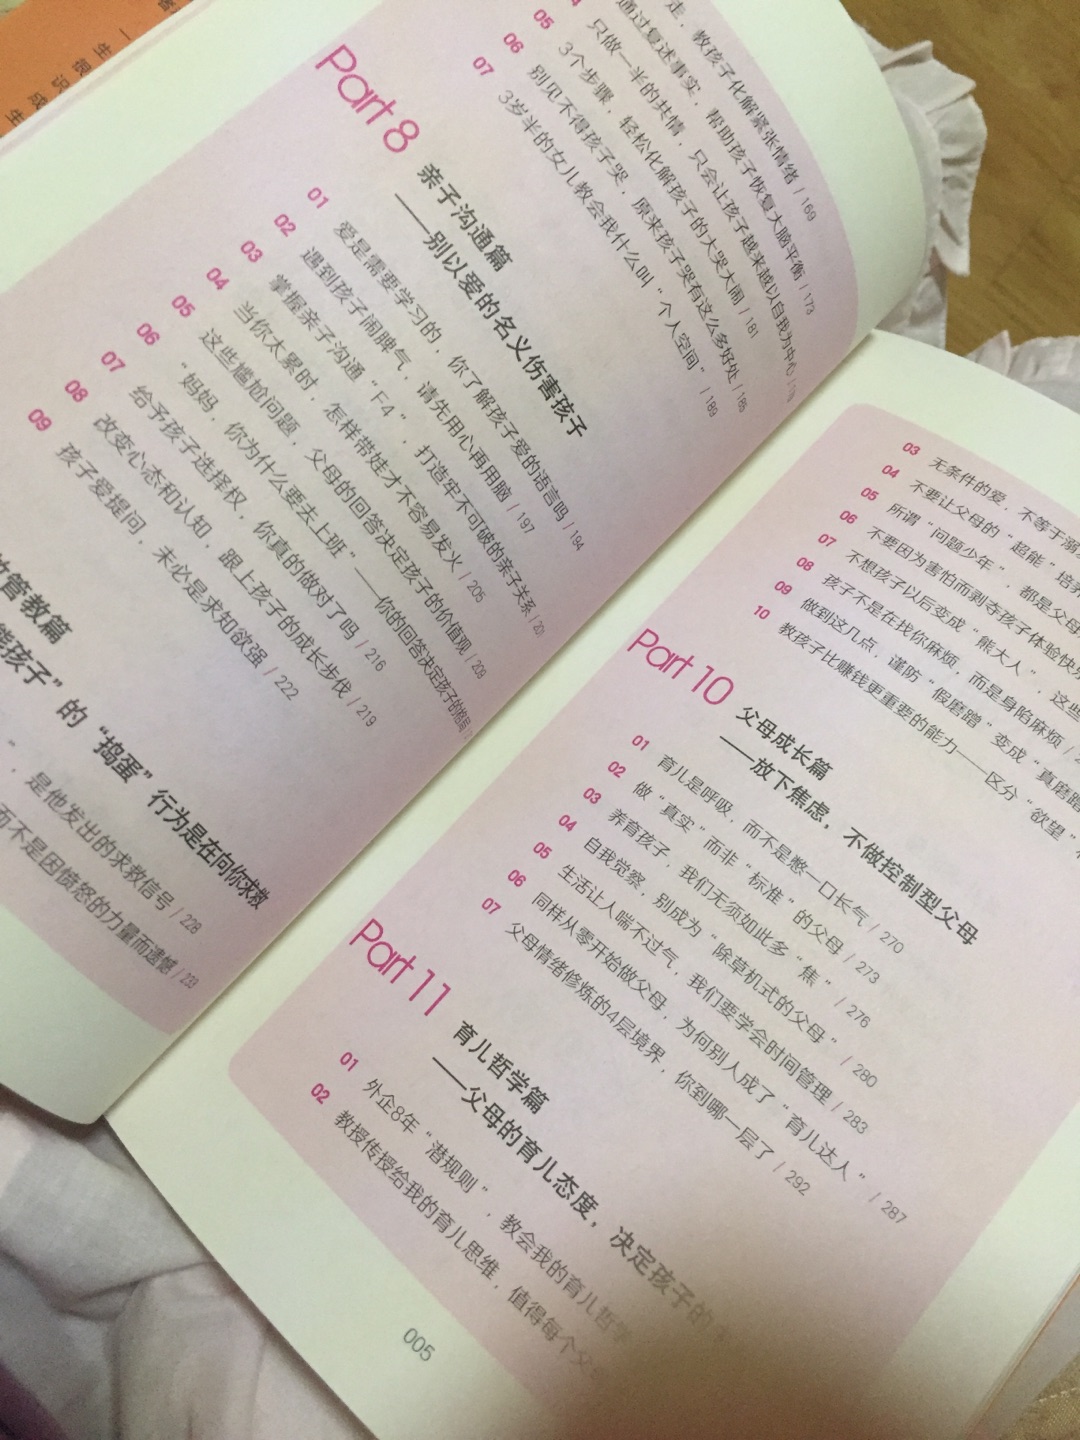 走，教孩子化解紧张情绪 / 169
通过复述事实，帮助孩子恢复大脑平衡 / 173
只做一半的共情，只会让孩子越来越以自我为中心
05 3个步骤，轻松化解孩子的大哭大闹 / 181
06 别见不得孩子哭，原来孩子哭有这么多好处 / 185
07 3岁半的女儿教会我什么叫“个人空间” / 189
Part 8 亲子沟通篇
——别以爱的名义伤害孩子
01 爱是需要学习的，你了解孩子爱的语言吗 / 194
02 遇到孩子闹脾气，请先用心再用脑 / 197
03 掌握亲子沟通“F4”，打造牢不可破的亲子关系 / 201
04 当你太累时，怎样带娃才不容易发火 / 205
05 这些尴尬问题，父母的回答决定孩子的价值观 / 209
06 “妈妈，你为什么要去上班”——你的回答决定孩子的格局
07 给予孩子选择权，你真的做对了吗 / 216
08 改变心态和认知，跟上孩子的成长步伐 / 219
09 孩子爱提问，未必是求知欲强 / 222
管教篇
熊孩子”的“捣蛋”行为是在向你求救
”，是他发出的求救信号 / 228
而不是因愤怒的力量而遗憾 / 233
03 无条件的爱，不等于溺爱
04 不要让父母的“超能”培养
05 所谓“问题少年”，都是父母
06 不要因为害怕而剥夺孩子体验快乐
07 不想孩子以后变成“熊大人”，这些
08 孩子不是在找你麻烦，而是身陷麻烦 /
09 做到这几点，谨防“假磨蹭”变成“真磨蹭
10 教孩子比赚钱更重要的能力——区分“欲望”
Part 10 父母成长篇
——放下焦虑，不做控制型父母
01 育儿是呼吸，而不是憋一口长气 / 270
02 做“真实”而非“标准”的父母 / 273
03 养育孩子，我们无须如此多“焦” / 276
04 自我觉察，别成为“除草机式的父母” / 280
05 生活让人喘不过气，我们要学会时间管理 / 283
06 同样从零开始做父母，为何别人成了“育儿达人” / 287
07 父母情绪修炼的4层境界，你到哪一层了 / 292
Part 11 育儿哲学篇
——父母的育儿态度，决定孩子的
01 外企8年“潜规则”，教会我的育儿哲学
02 教授传授给我的育儿思维，值得每个父
005